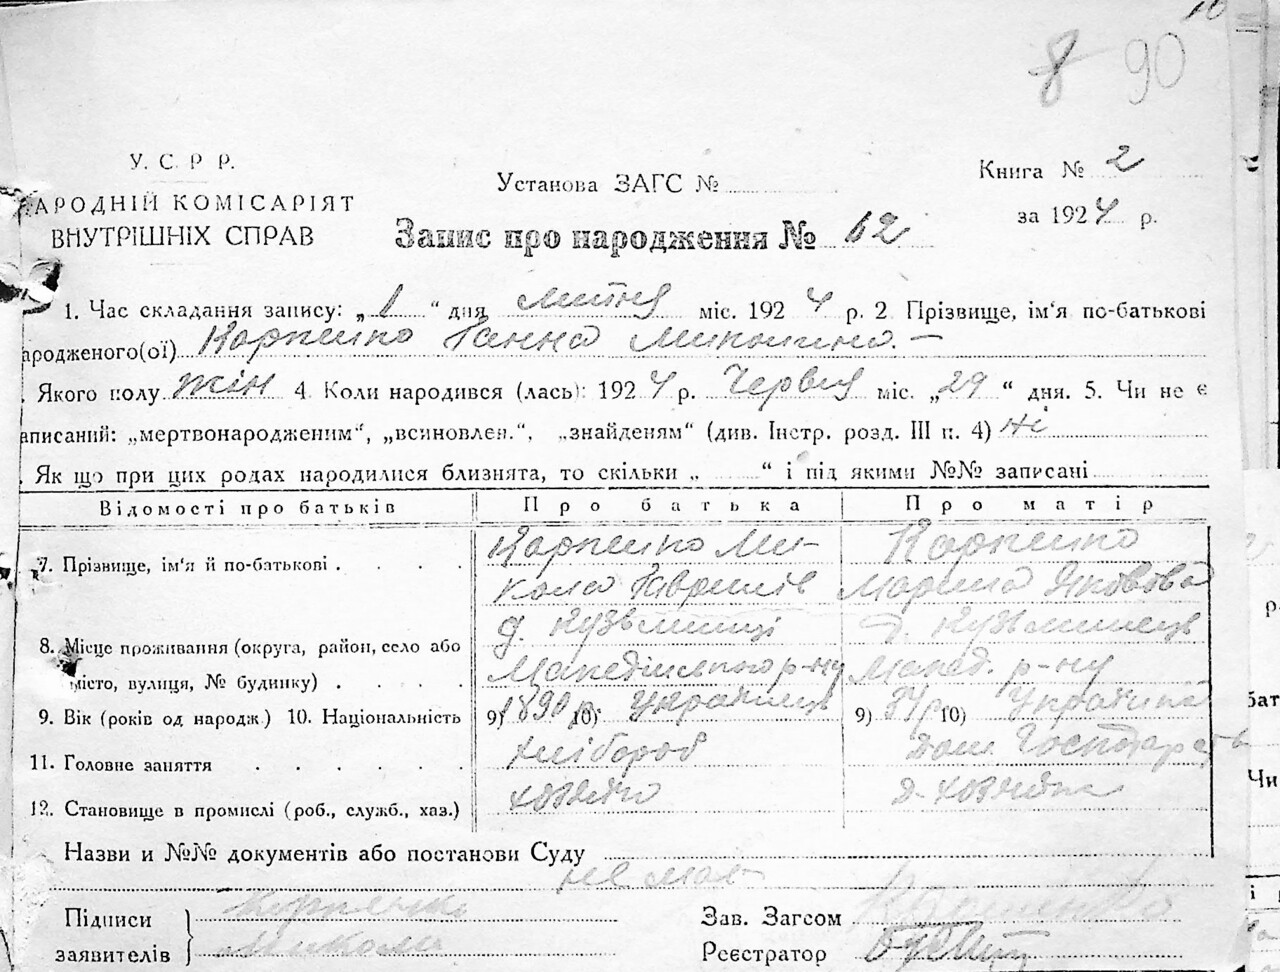 8 90
У. С. Р. Р.
НАРОДНІЙ КОМІСАРІЯТ
ВНУТРІШНІХ СПРАВ
Установа ЗАГС №
Книга № 2
за 1924 р.
Запис про народження № 62
1. Час складання запису: „1“ дня липня міс. 1924 р. 2. Прізвище, ім'я по-батькові
ародженого(ої) Карпенко Ганна Миколина. —
. Якого полу жін 4. Коли народився (лась): 1924 р. Червня міс. „29“ дня. 5. Чи не є
аписаний: „мертвонародженим“, „всиновлен.“, „знайденям“ (див. Інстр. розд. III п. 4) Ні
. Як що при цих родах народилися близнята, то скільки „ “ і під якими №№ записані
Відомості про батьків Про батька Про матір
7. Прізвище, ім'я й по-батькові . . . . Карпенко Ми-
кола Гаврилів
Карпенко
Марина Яковова
8. Місце проживання (округа, район, село або
місто, вулиця, № будинку) . . . .
д. Кузьминці
р-ну
д. Кузьминець
Макед. р-ну
9. Вік (років од народж.) 10. Національність 9) 1890 р. 10) Українець 9) 34 р. 10) Українка
11. Головне заняття . . . . . . Хлібороб Дом. Господарств
12. Становище в промислі (роб., служб., хаз.) хозяїн д. хозяйка
Назви и №№ документів або постанови Суду
не має
Підписи
заявителів
Карпенко
Микола
Зав. Загсом
Реєстратор